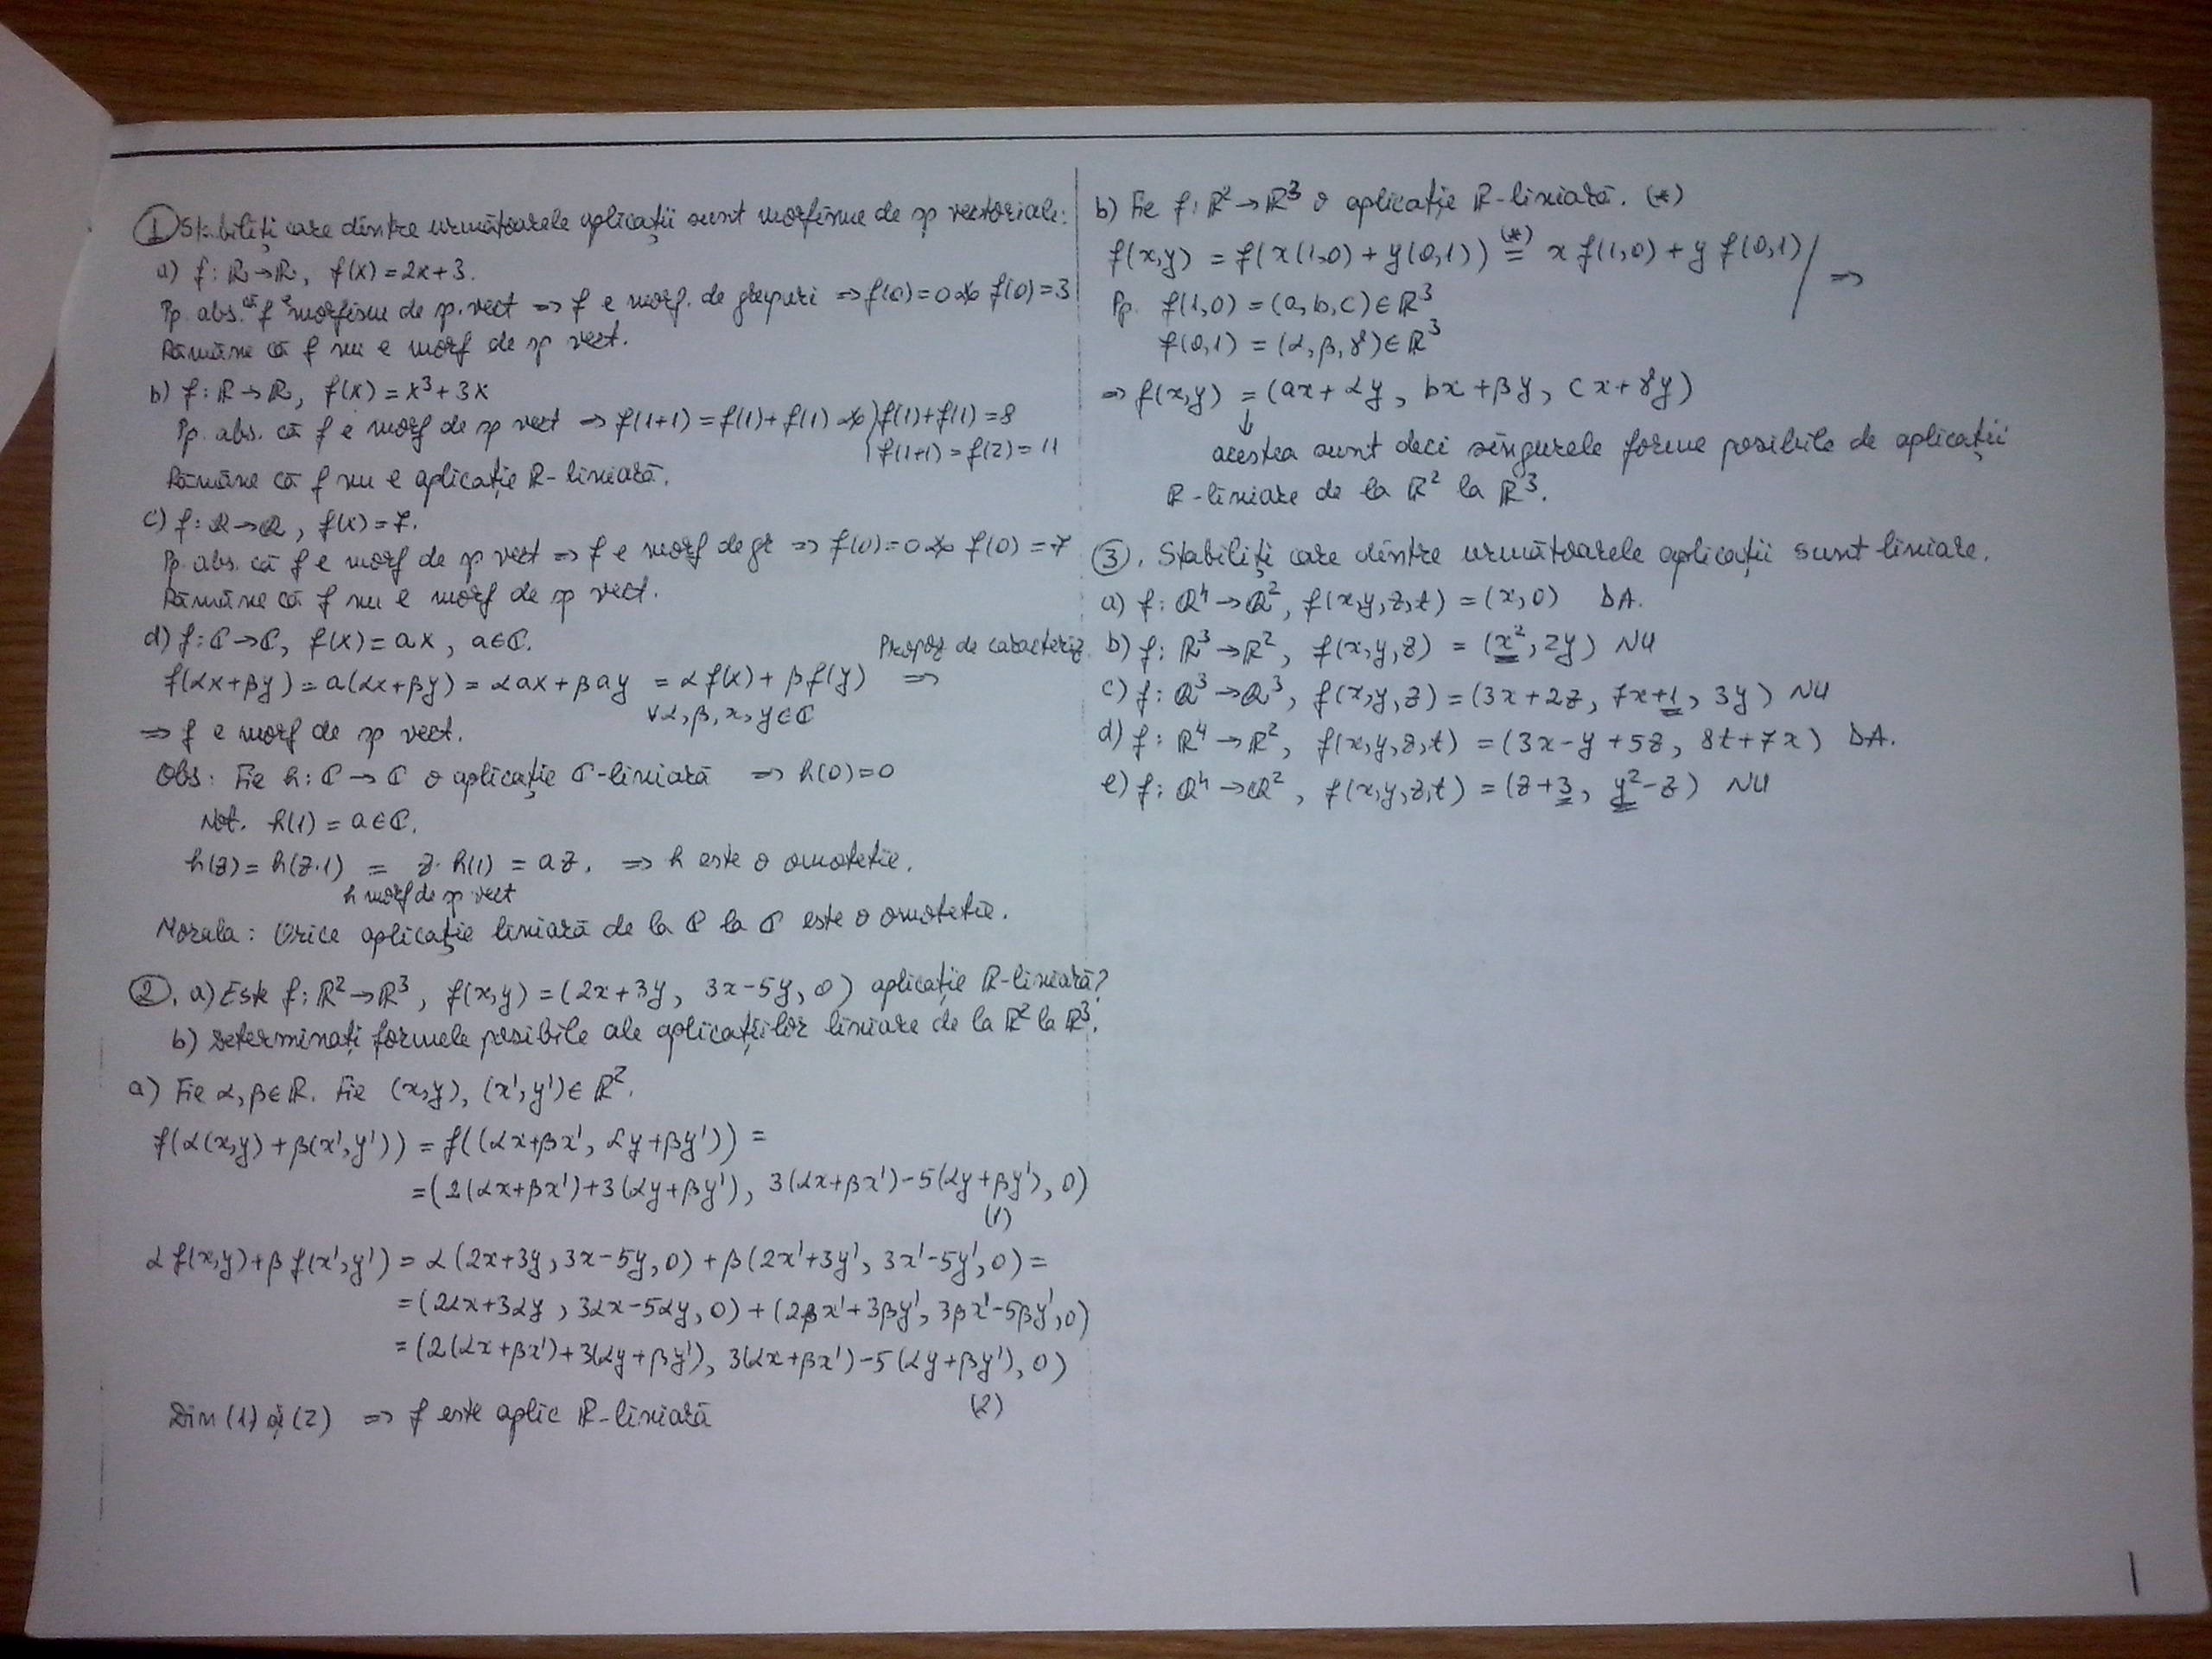 ① Stabiliți care dintre următoarele aplicații sunt morfisme de sp vectoriale:
a) f: R→R, f(x) = 2x+3.
Pp. abs. că f e morfism de sp. vect ⇒ f e morf. de grupuri ⇒ f(0)=0 ※ f(0)=3
Rămâne că f nu e morf de sp vect.
b) f: R→R, f(x) = x³+3x
Pp. abs. că f e morf de sp vect ⇒ f(1+1) = f(1)+f(1) ※ { f(1)+f(1) = 8
f(1+1) = f(2) = 11
Rămâne că f nu e aplicație R-liniară.
c) f: Q→Q, f(x) = 7.
Pp. abs. că f e morf de sp vect ⇒ f e morf de gr ⇒ f(0)=0 ※ f(0) = 7
Rămâne că f nu e morf de sp vect.
d) f: C→C, f(x) = ax, a∈C.
Propoz de caracteriz.
f(αx+βy) = a(αx+βy) = αax+βay = αf(x)+βf(y) ⇒
∀α, β, x, y∈C
⇒ f e morf de sp vect.
Obs: Fie h: C→C o aplicație C-liniară ⇒ h(0)=0
Not. h(1) = a∈C.
h(z) = h(z·1) = z·h(1) = az. ⇒ h este o omotetie.
h morf de sp vect
Morala: Orice aplicație liniară de la C la C este o omotetie.
②. a) Este f: R²→R³, f(x,y) = (2x+3y, 3x-5y, 0) aplicație R-liniară?
b) Determinați formele posibile ale aplicațiilor liniare de la R² la R³.
a) Fie α, β∈R. Fie (x,y), (x',y')∈R².
f(α(x,y)+β(x',y')) = f((αx+βx', αy+βy')) =
=(2(αx+βx')+3(αy+βy'), 3(αx+βx')-5(αy+βy'), 0)
(1)
αf(x,y)+βf(x',y') = α(2x+3y, 3x-5y, 0)+β(2x'+3y', 3x'-5y', 0) =
=(2αx+3αy, 3αx-5αy, 0)+(2βx'+3βy', 3βx'-5βy', 0)
=(2(αx+βx')+3(αy+βy'), 3(αx+βx')-5(αy+βy'), 0)
(2)
Din (1) și (2) ⇒ f este aplic R-liniară
b) Fie f: R²→R³ o aplicație R-liniară. (*)
f(x,y) = f(x(1,0)+y(0,1)) (*)= x f(1,0)+y f(0,1) / ⇒
Pp. f(1,0) = (a,b,c)∈R³
f(0,1) = (α,β,γ)∈R³
⇒ f(x,y) = (ax+αy, bx+βy, cx+γy)
↓
acestea sunt deci singurele forme posibile de aplicații
R-liniare de la R² la R³.
③. Stabiliți care dintre următoarele aplicații sunt liniare.
a) f: Q⁴→Q², f(x,y,z,t) = (x,0) DA.
b) f: R³→R², f(x,y,z) = (x², 2y) NU
c) f: Q³→Q³, f(x,y,z) = (3x+2z, 7x+1, 3y) NU
d) f: R⁴→R², f(x,y,z,t) = (3x-y+5z, 8t+7x) DA.
e) f: Q⁴→Q², f(x,y,z,t) = (z+3, y²-z) NU